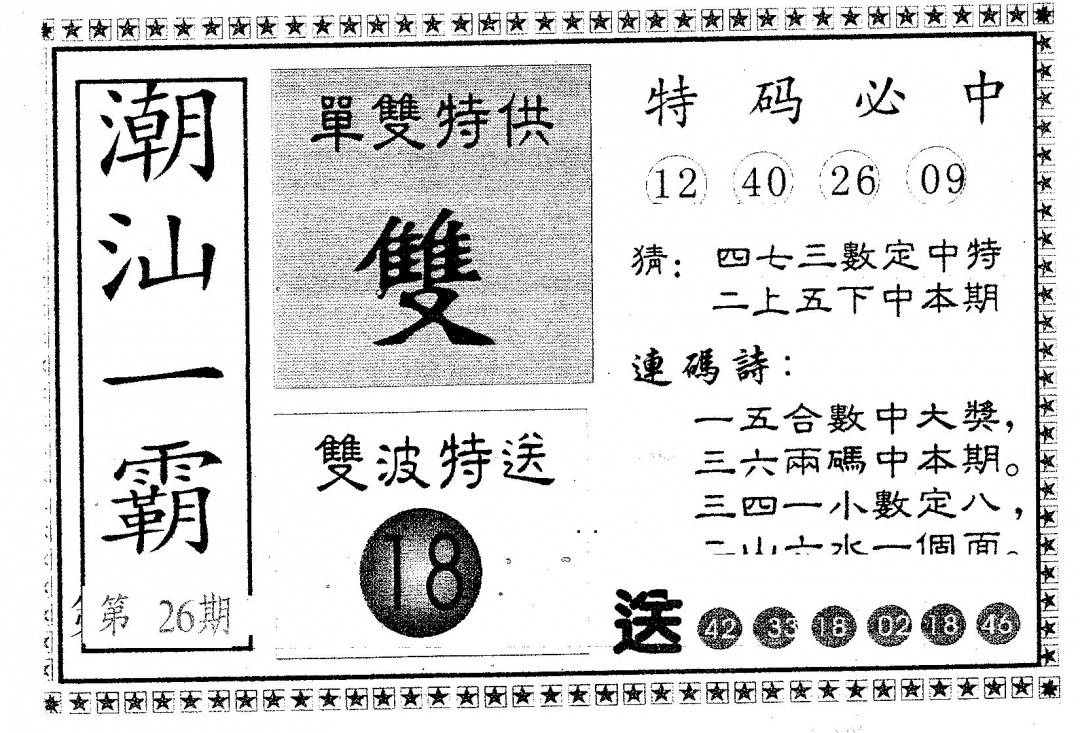 潮汕一霸
第 26期
單雙特供
雙
雙波特送
18
特码必中
12 40 26 09
猜：四七三數定中特
二上五下中本期
連碼詩：
一五合數中大獎，
三六兩碼中本期。
三四一小數定八，
二山六水一個面。
送 42 33 18 02 18 46